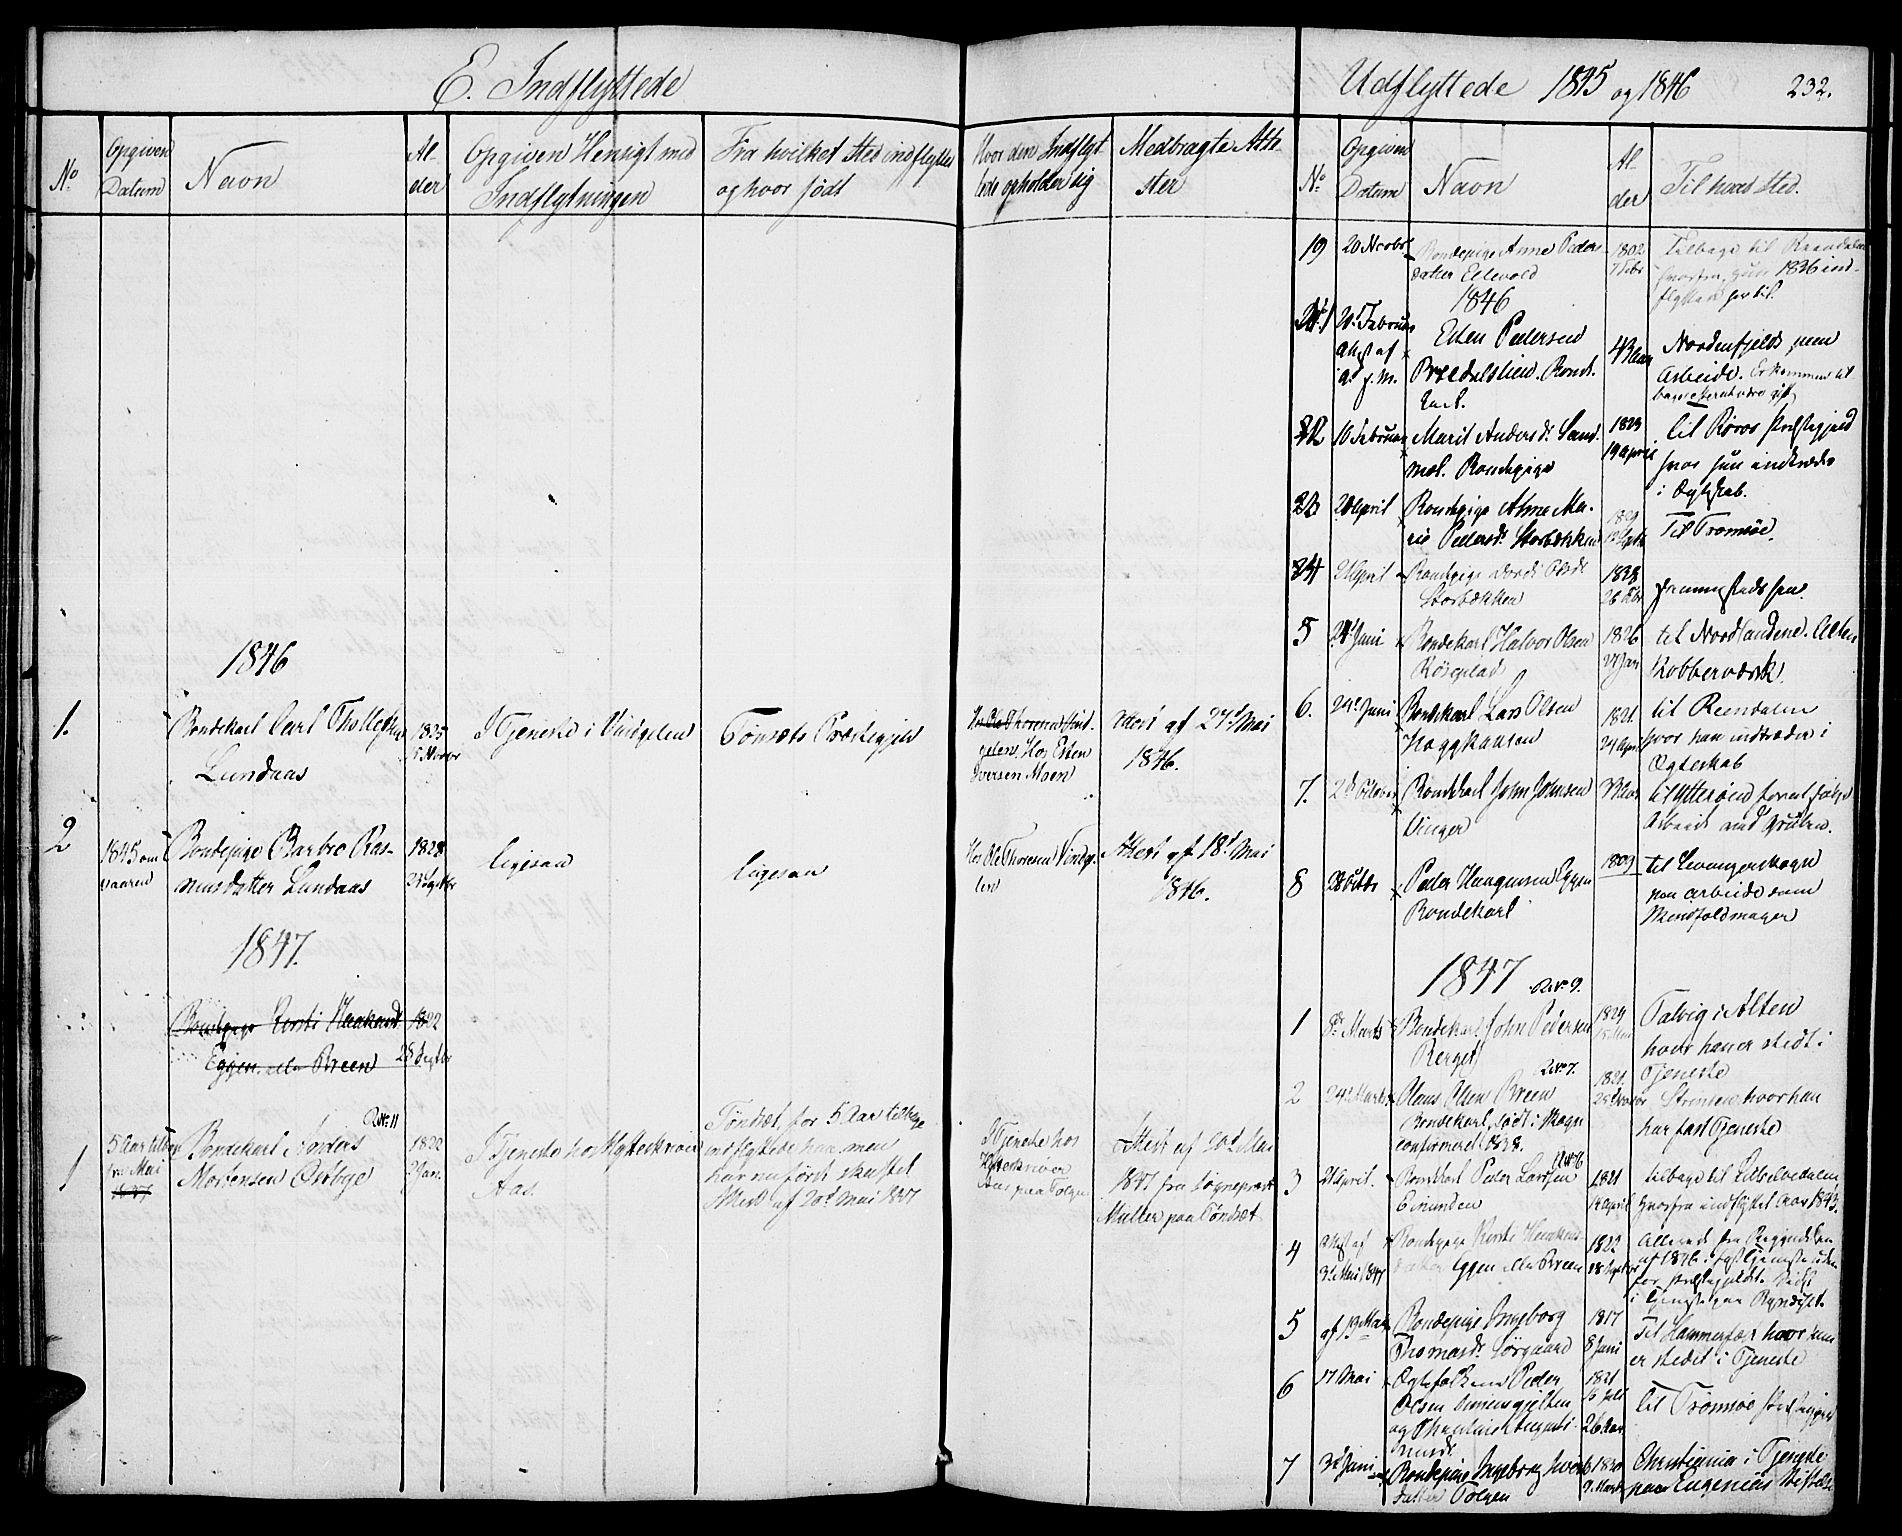 E. Indflyttede
No
Opgiven
Datum
Navn
Al-
der
Opgiven Hensigt med
Indflytningen
Fra hvilket Sted indflyttet
og hvor født
Hvor den Indflyt-
tede opholder sig
Medbragte Atte-
ster
1846
1.
Bondekarl Carl Tholefsen
Lundaas
1825
I Tjeneste i Vingelen
Tønsets Præstegjeld
Ole Thoresen Vin-
gelen. Hos Esten
Iversen Moen
Attest af 27d Mai
1846.
2
1845 om
vaaren
Bondepige Barbro Ras-
musdatter Lundaas
1828
23 Septbr
ligesaa
ligesaa
Hos Ole Thoresen Vinge-
len
Attest af 18d Mai
1846.
1847.
Bondepige Kersti Haakensd
Eggen eller Breen
1822
28 Septbr
1
5 Aar tilbage
fra Mai
1847
Rev. 11
Bondekarl Anders
Mortensen Østbye
1822
2 Jan.
I Tjeneste hos Hytteskriver
Aas.
Tøndset, for 5 Aar tilbage
indflyttede han men
har nu først skaffet
Attest af 20d Mai 1847
I Tjeneste hos
Hytteskriver
Aas paa Tolgen
Attest af 20d Mai
1847 fra Sognepræst
Müller paa Tøndset
Udflyttede 1845 og 1846
232.
No
Opgiven
Datum
Navn
Al-
der
Til hvad Sted.
19
20 Novbr
Bondepige Anne Peders-
datter Ellevold
1802
7 Febr
Tilbage til Reendalen
hvorfra hun 1826 ind-
flyttede hertil.
1846
1
20d Februar
Attest af
Esten Pedersen
Breedalslien. Bonde-
karl.
43 Aar
Nordenfjelds, paa
Arbeide. Er kommen til
bage
2
10 Februar
Marit Andersd. Sand-
mæl. Bondepige
1823
19 April
til Røros Præstegjeld
hvor hun indtræder
i Ægteskab.
3
20 April
Bondepige Anne Ma-
rie Pedersd. Storbækken
Til Tromsøe.
4
21 April
Bondepige Dordi Olsd.
Storbækken
1828
26 Febr
sammesteds hen.
5
24 Juni
Bondekarl Halvor Olsen
Røseplad
1826
27 Jan
til Nordlandene. Alten
Kobberværk.
6.
24d Juni
Bondekarl Lars Olsen
Hoggkausen
1821.
24 April
til Reendalen
hvor han indtræder i
Ægteskab
7.
2d October
Bondekarl John Johnsen
Vinger
til Ytterøen for at søge
Arbeide ved Gruben.
8
28 Octbr
Peder Haagensen Eggen
Bondekarl
1809
til Levangerskogn
paa arbeide som
Skindfeldmager
1847
Rev. 9.
1
8de Marts
Bondekarl John Pedersen
Berget
1829
Talvig i Alten
hvor han er stedt i
Tjeneste
Rev. 7.
2
24d Marts
Claus Olsen Breen
Bondekarl, født i Skogn
confirmeret 1838.
1821.
Strinden, hvor han
har fast Tjeneste
3
21 April.
Bondekarl Peder Larsen
Einunden
1821
14 April
tilbage til Lilleelvedalen,
hvorfra indflyttet Aar 1843.
4
Attest af
3d Mai 1847
Bondepige Kersti Haakens-
datter Eggen eller Breen
1822
28 Septbr
Allerede fra Begyndelsen
af 1846 i fast Tjeneste uden
for Præstegjeldet. Stedt
i Tjeneste paa Ryndset.
5
af 19 Mai
Bondepige Ingeborg
Thomasd. Sørgaard
1817
8 Juni
Til Hammerfest hvor hun
er stedet i Tjeneste
6
17 Mai
Ægtefolkene Peder
Olsen Simensgjelten
og
1821
26 Aar
til Tromsøe Præstegjeld
7
3d Juni
Bondepige Ingeborg Ivers-
datter Tolgen
1830
9. Marts
Christiania i Tjeneste
paa Eugenias Stiftelse